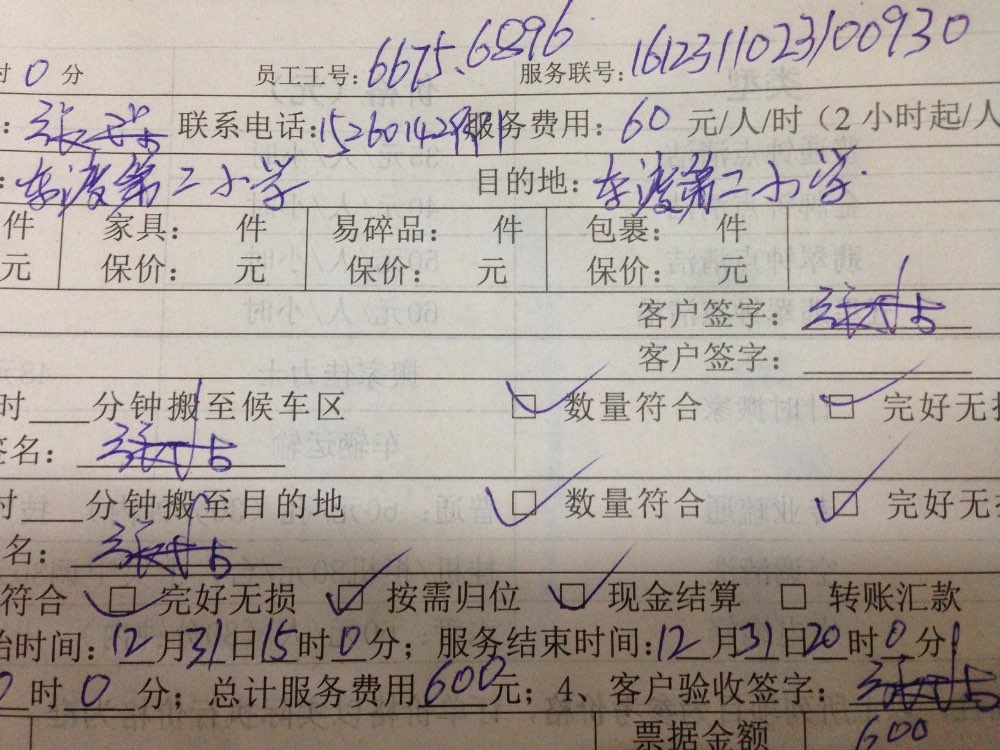 时 0 分 员工工号: 6675、6896 服务联号: 1612311023100930
: 联系电话: 服务费用: 60 元/人/时（2 小时起/人
: 东渡第二小学 目的地: 东渡第二小学
件 家具: 件 易碎品: 件 包裹: 件
元 保价: 元 保价: 元 保价: 元
客户签字:
客户签字:
时 分钟搬至候车区 □ 数量符合 □ 完好无损
签名:
时 分钟搬至目的地 □ 数量符合 □ 完好无
名:
符合 □ 完好无损 □ 按需归位 □ 现金结算 □ 转账汇款
始时间: 12 月 31 日 15 时 0 分; 服务结束时间: 12 月 31 日 20 时 0 分
0 时 0 分; 总计服务费用 600 元; 4、客户验收签字:
票据金额 600